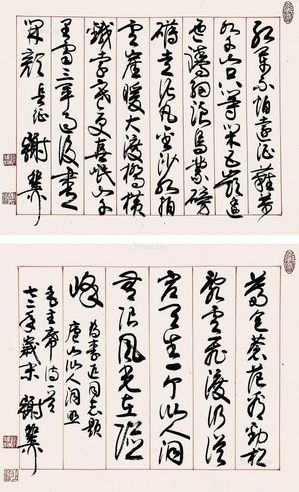 红军不怕远征难万
水千山只等闲五岭逶
迤腾细浪乌蒙磅
礴走泥丸金沙水拍
云崖暖大渡桥横
铁索寒更喜岷山千
里雪三军过后尽
开颜 长征 谢
暮色苍茫看劲松
乱云飞渡仍从
容天生一个仙人洞
无限风光在险
峰 为李进同志题
庐山仙人洞照
毛主席诗一首
七二年岁末 谢